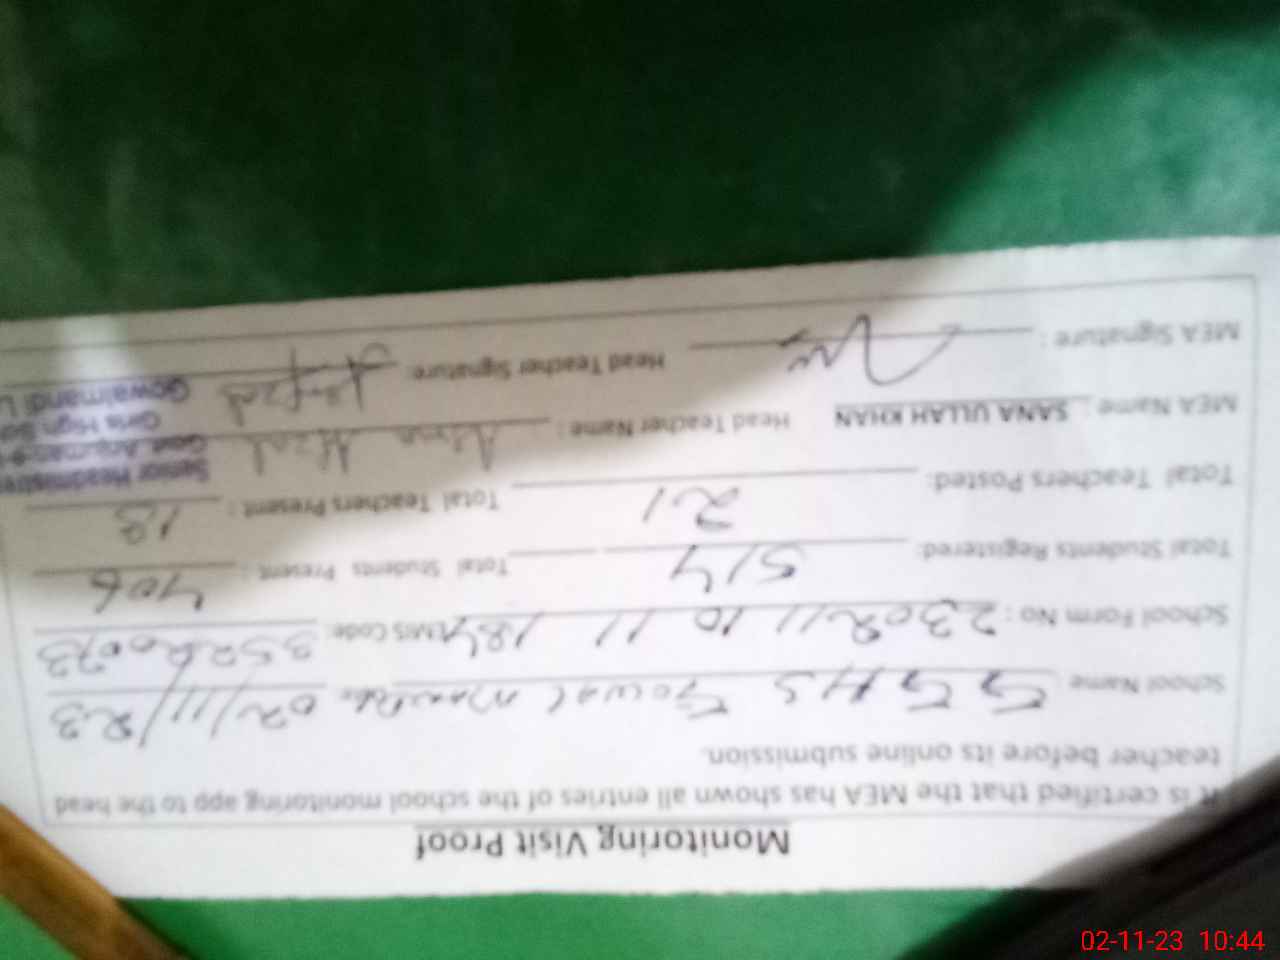 Monitoring Visit Proof
It is certified that the MEA has shown all entries of the school monitoring app to the head
teacher before its online submission.
School Name GGHS Gowal Mandi 02/11/23
School Form No : 230211 10 11 184 EMIS Code: 35220073
Total Students Registered: 514 Total Students Present : 406
Total Teachers Posted: 21 Total Teachers Present : 13
MEA Name : SANA ULLAH KHAN Head Teacher Name :
MEA Signature : Head Teacher Signature:
Senior Headmistress
Girls High
Gowalmandi L
02-11-23 10:44